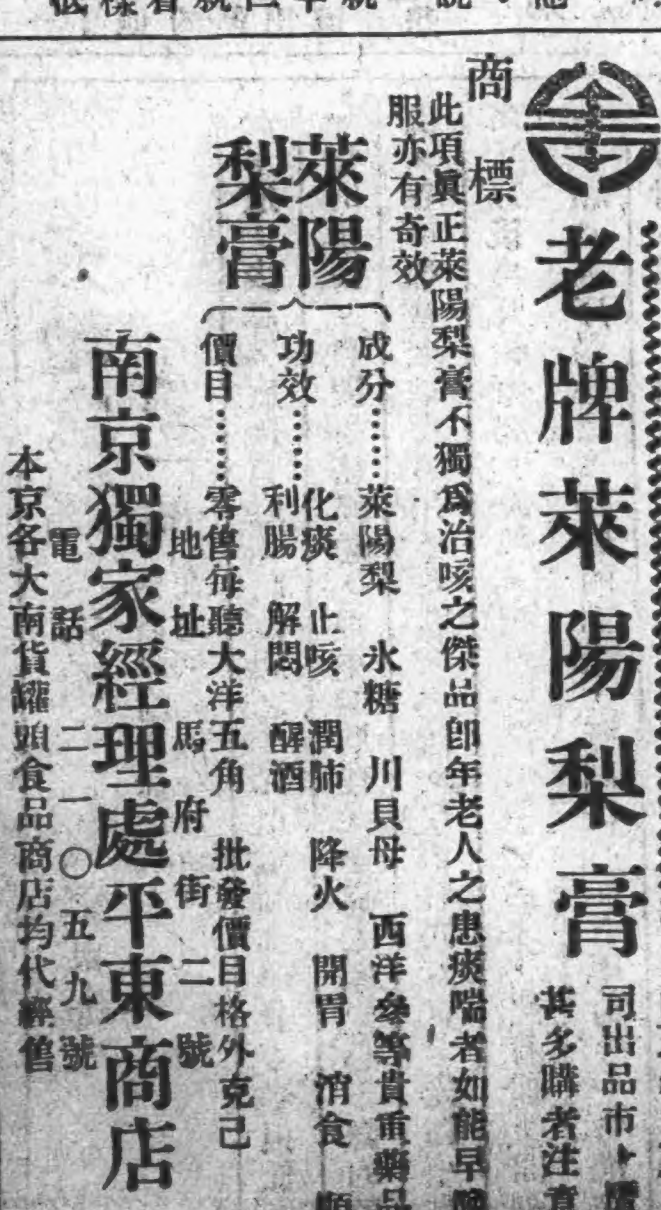 老牌萊陽梨膏
司出品市上
甚多購者注意
商標
此項眞正萊陽梨膏不獨爲治咳之傑品卽年老人之患痰喘者如能早
服亦有奇效
萊陽
梨膏
成分……萊陽梨 氷糖 川貝母 西洋參等貴重藥品
功效……化痰 止咳 潤肺 降火 開胃 消食
利腸 解悶 醒酒
價目……零售每聽大洋五角 批發價目格外克己
地址 馬府街二號
南京獨家經理處平東商店
電話 二一〇五九號
本京各大南貨罐頭食品商店均代經售